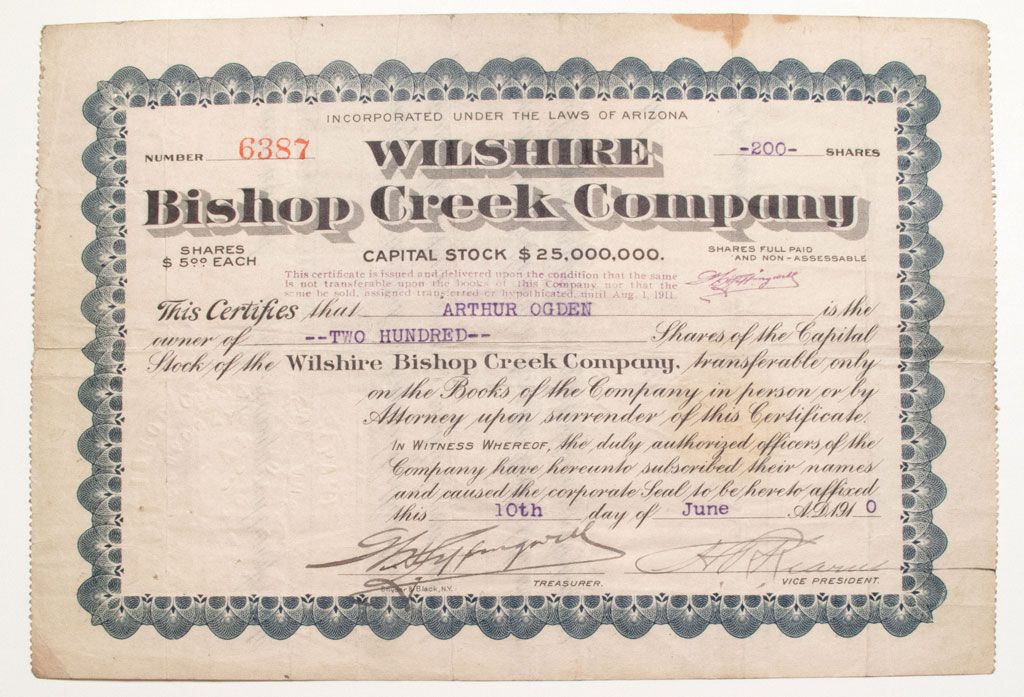 INCORPORATED UNDER THE LAWS OF ARIZONA
NUMBER 6387 WILSHIRE -200- SHARES
Bishop Creek Company
SHARES $5.00 EACH CAPITAL STOCK $25,000,000. SHARES FULL PAID AND NON-ASSESSABLE
This certificate is issued and delivered upon the condition that the same
is not transferable upon the books of this Company, nor that the
same be sold, assigned transferred or hypothicated, until Aug. 1, 1911.
This Certifies that ARTHUR OGDEN is the
owner of --TWO HUNDRED-- Shares of the Capital
Stock of the Wilshire Bishop Creek Company, transferable only
on the Books of the Company in person or by
Attorney upon surrender of this Certificate.
IN WITNESS WHEREOF, the duly authorized officers of the
Company have hereunto subscribed their names
and caused the corporate Seal to be hereto affixed
this 10th day of June A.D. 1910
TREASURER. VICE PRESIDENT.
Black, N.Y.